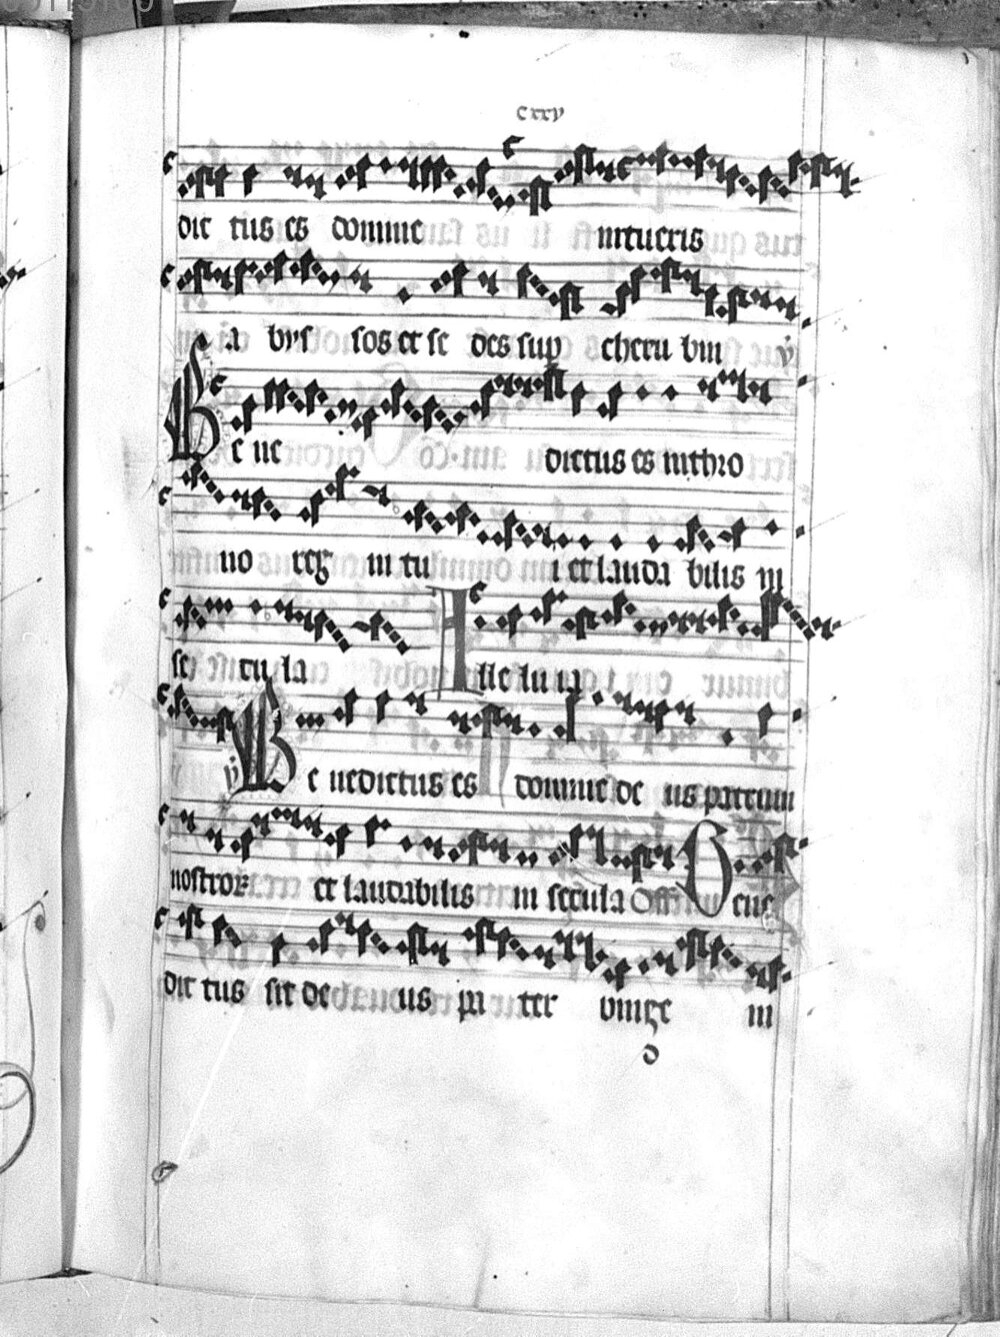 cxxv
dic tus es domine intueris
a bys sos et se des sup cheru bin ℣
Be ne dictus es in thro
no reg ni tu i et lauda bilis in
se cu la Alle lu ia
℣ Be nedictus es domine de us patrum
nostror et laudabilis in secula Off Bene
dic tus sit de us pa ter unige ni